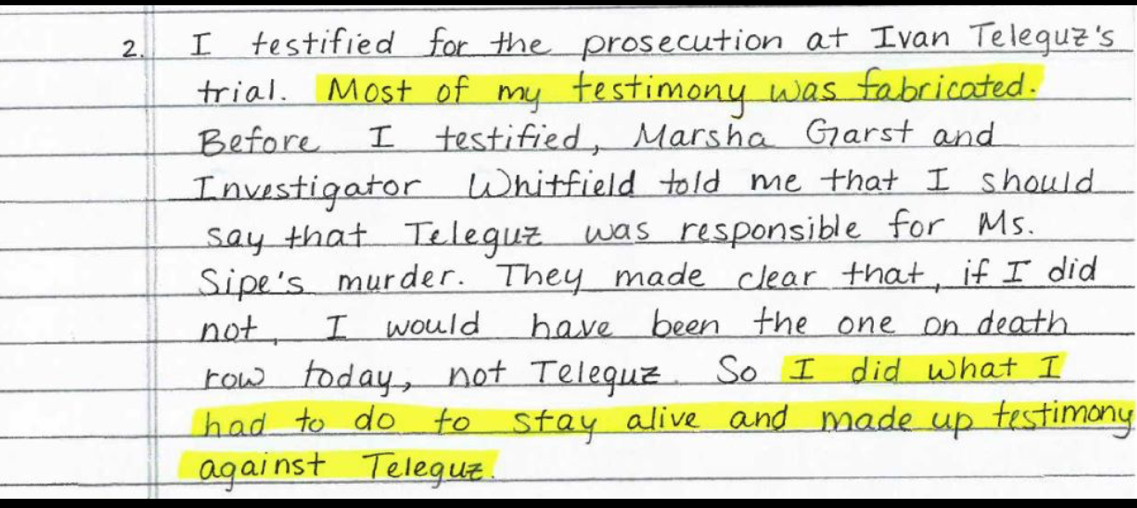 2. I testified for the prosecution at Ivan Teleguz's
trial. Most of my testimony was fabricated.
Before I testified, Marsha Garst and
Investigator Whitfield told me that I should
say that Teleguz was responsible for Ms.
Sipe's murder. They made clear that, if I did
not, I would have been the one on death
row today, not Teleguz. So I did what I
had to do to stay alive and made up testimony
against Teleguz.